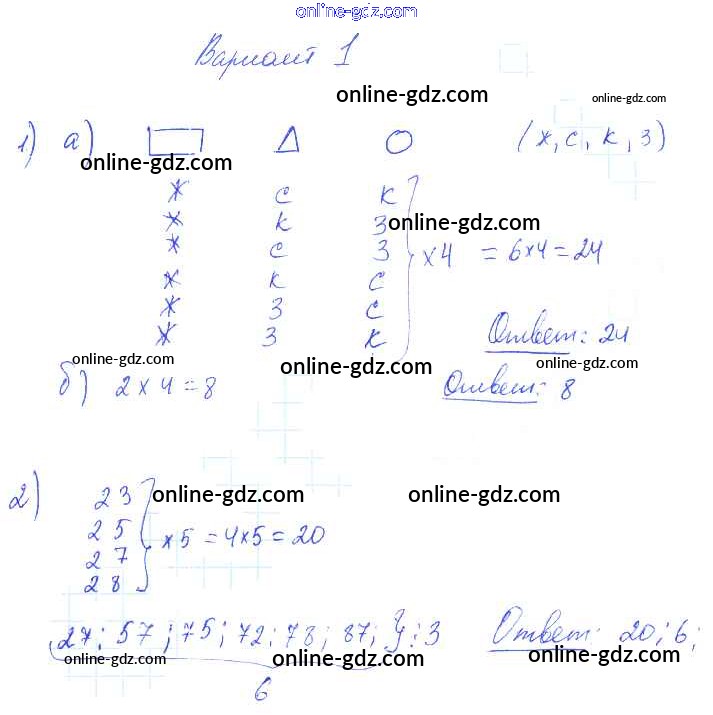 online-gdz.com
Вариант 1
online-gdz.com
online-gdz.com
1) а) ▭ Δ ○ (ж, с, к, з)
online-gdz.com
ж с к
ж к з online-gdz.com
ж с з } x4 = 6x4 = 24
ж к с
ж з с
ж з к Ответ: 24
online-gdz.com online-gdz.com online-gdz.com
б) 2 x 4 = 8 Ответ: 8
2) 23 online-gdz.com online-gdz.com
25 } x5 = 4x5 = 20
27
28
27; 57; 75; 72; 78; 87; } : 3 Ответ: 20; 6;
online-gdz.com online-gdz.com online-gdz.com
6